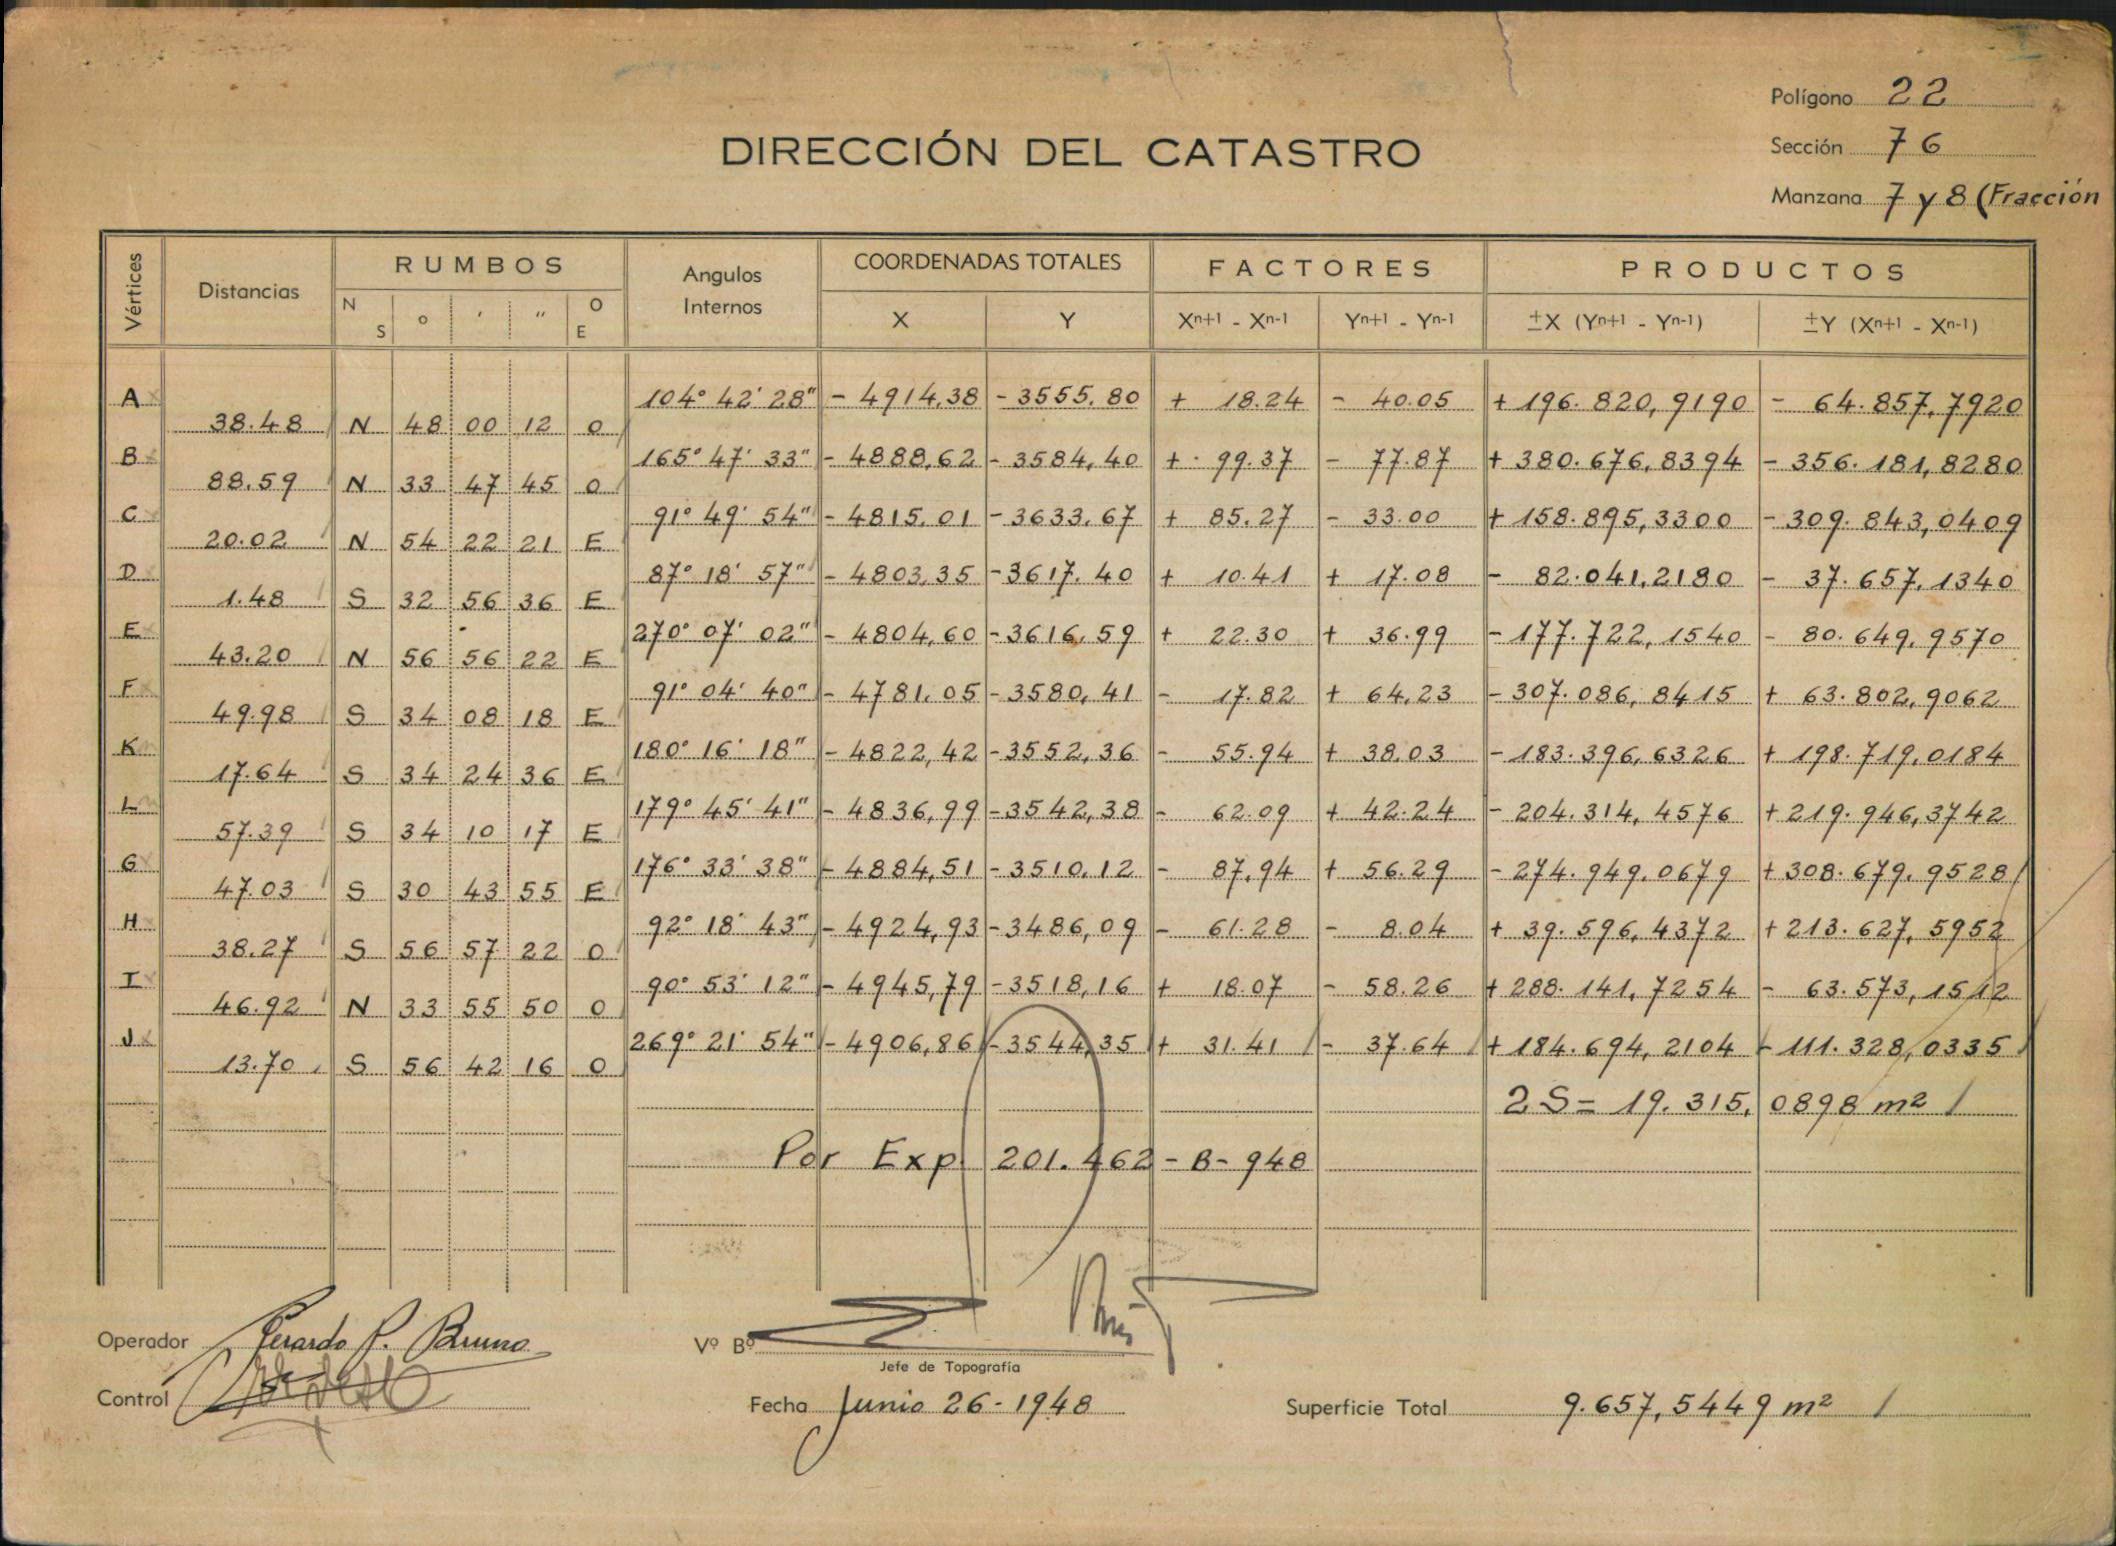 Polígono 22
DIRECCIÓN DEL CATASTRO
Sección 76
Manzana 7 y 8 (Fracción
Vértices Distancias RUMBOS Angulos Internos COORDENADAS TOTALES FACTORES PRODUCTOS
N S o ' " O E X Y Xn+1 - Xn-1 Yn+1 - Yn-1 ±X (Yn+1 - Yn-1) ±Y (Xn+1 - Xn-1)
A 104° 42' 28" - 4914,38 - 3555,80 + 18.24 - 40.05 + 196.820,9190 - 64.857,7920
38.48 N 48 00 12 O
B 165° 47' 33" - 4888,62 - 3584,40 + 99.37 - 77.87 + 380.676,8394 - 356.181,8280
88.59 N 33 47 45 O
C 91° 49' 54" - 4815,01 - 3633,67 + 85.27 - 33.00 + 158.895,3300 - 309.843,0409
20.02 N 54 22 21 E
D 87° 18' 57" - 4803,35 - 3617,40 + 10.41 + 17.08 - 82.041,2180 - 37.657,1340
1.48 S 32 56 36 E
E 270° 07' 02" - 4804,60 - 3616,59 + 22.30 + 36.99 - 177.722,1540 - 80.649,9570
43.20 N 56 56 22 E
F 91° 04' 40" - 4781,05 - 3580,41 - 17.82 + 64,23 - 307.086,8415 + 63.802,9062
49.98 S 34 08 18 E
K 180° 16' 18" - 4822,42 - 3552,36 - 55.94 + 38.03 - 183.396,6326 + 198.719,0184
17.64 S 34 24 36 E
L 179° 45' 41" - 4836,99 - 3542,38 - 62.09 + 42.24 - 204.314,4576 + 219.946,3742
57.39 S 34 10 17 E
G 176° 33' 38" - 4884,51 - 3510,12 - 87,94 + 56.29 - 274.949,0679 + 308.679,9528
47.03 S 30 43 55 E
H 92° 18' 43" - 4924,93 - 3486,09 - 61.28 - 8.04 + 39.596,4372 + 213.627,5952
38.27 S 56 57 22 O
I 90° 53' 12" - 4945,79 - 3518,16 + 18.07 - 58.26 + 288.141,7254 - 63.573,1512
46.92 N 33 55 50 O
J 269° 21' 54" - 4906,86 - 3544,35 + 31.41 - 37.64 + 184.694,2104 - 111.328,0335
13.70 S 56 42 16 O
2 S = 19.315,0898 m2
Por Exp. 201.462 - B - 948
Operador Gerardo P. Bruno
Vº Bº
Jefe de Topografía
Control
Fecha Junio 26 - 1948
Superficie Total 9.657,5449 m2